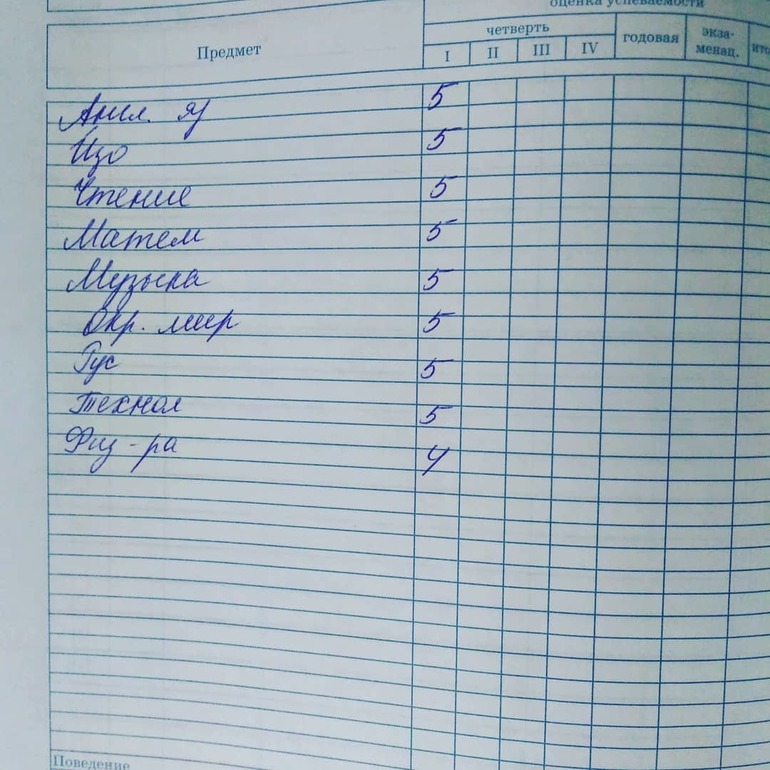 оценка успеваемости
Предмет четверть годовая экза-
менац.
I II III IV
Англ. яз 5
Изо 5
Чтение 5
Матем 5
Музыка 5
Окр. мир 5
Рус 5
Технол 5
Физ-ра 4
Поведение